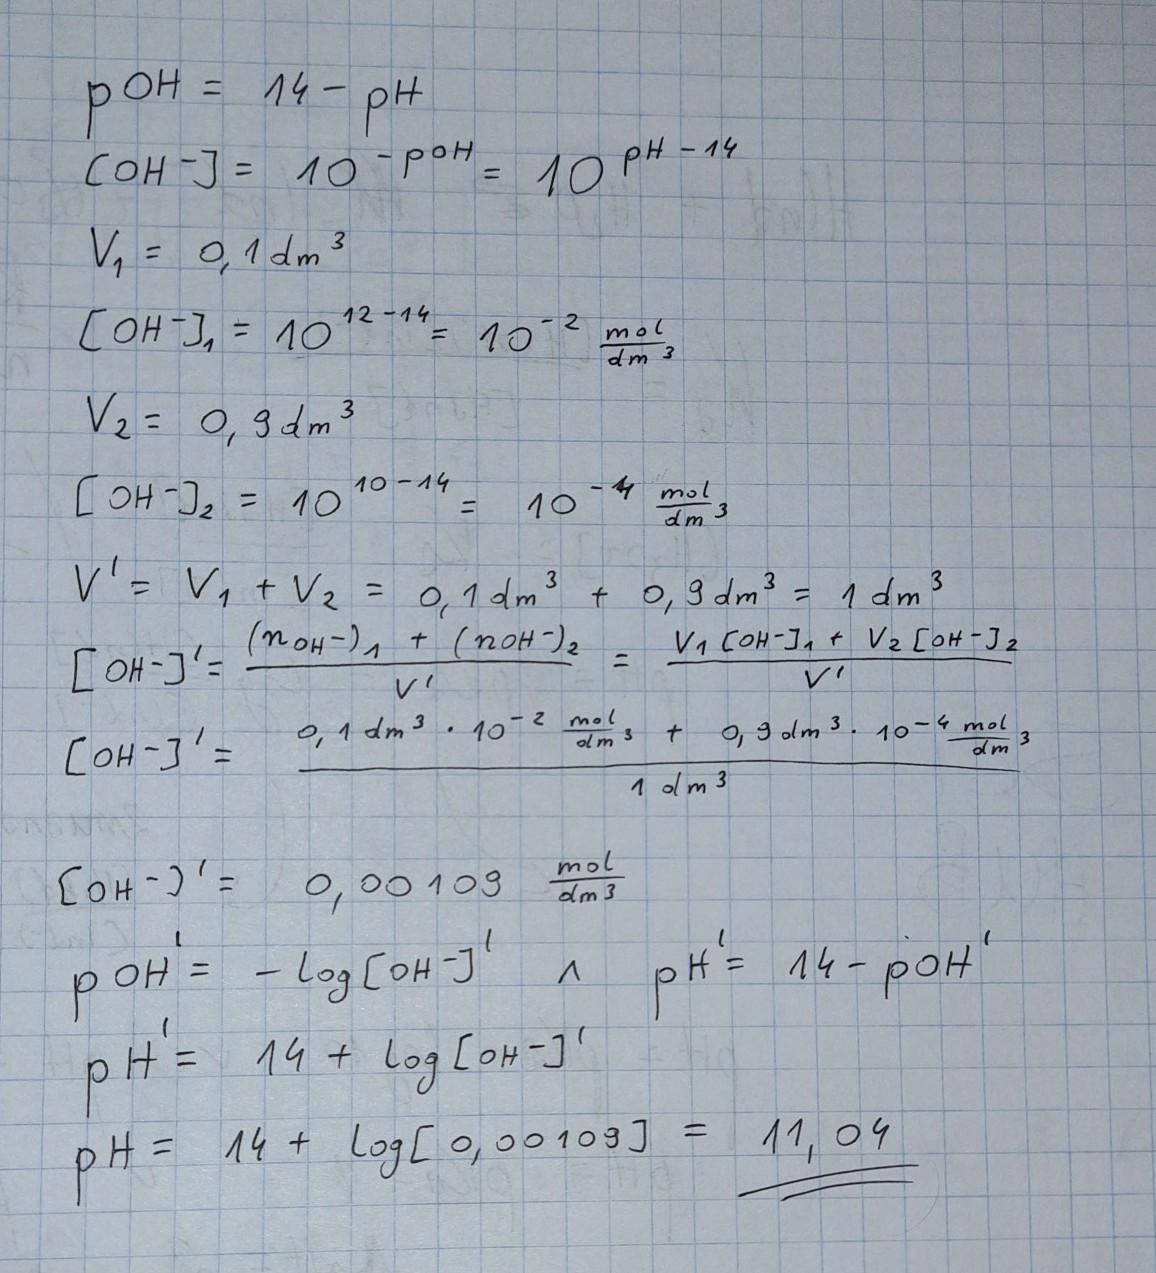 pOH = 14 - pH
[OH⁻] = 10^(-pOH) = 10^(pH - 14)
V₁ = 0,1 dm³
[OH⁻]₁ = 10^(12-14) = 10⁻² mol/dm³
V₂ = 0,9 dm³
[OH⁻]₂ = 10^(10-14) = 10⁻⁴ mol/dm³
V' = V₁ + V₂ = 0,1 dm³ + 0,9 dm³ = 1 dm³
[OH⁻]' = ((nOH⁻)₁ + (nOH⁻)₂)/V' = (V₁[OH⁻]₁ + V₂[OH⁻]₂)/V'
[OH⁻]' = (0,1 dm³ · 10⁻² mol/dm³ + 0,9 dm³ · 10⁻⁴ mol/dm³)/1 dm³
[OH⁻]' = 0,00109 mol/dm³
pOH' = -log[OH⁻]' ∧ pH' = 14 - pOH'
pH' = 14 + log[OH⁻]'
pH = 14 + log[0,00109] = 11,04